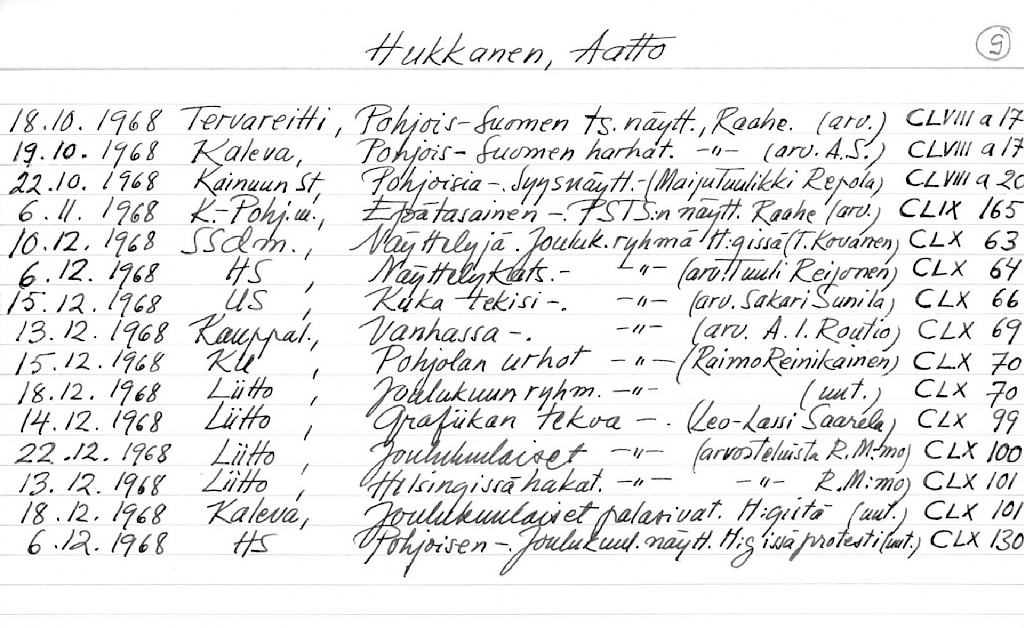 Hukkanen, Aatto 9
18.10. 1968 Tervareitti, Pohjois-Suomen ts. näytt., Raahe. (arv.) CLVIII a 17
19.10. 1968 Kaleva, Pohjois-Suomen harhat. -"- (arv. A.S.) CLVIII a 17
22.10. 1968 Kainuun St, Pohjoisia-. Syysnäytt.-(Maiju Tuulikki Repola) CLVIII a 20
6.11. 1968 K.-Pohj.m., Epätasainen -. PSTS:n näytt. Raahe (arv.) CLIX 165
10.12. 1968 SSdm., Näyttelyjä. Jouluk. ryhmä H:gissä (T. Kovanen) CLX 63
6.12. 1968 HS, Näyttelykats. - -"- (arv. Tuuli Reijonen) CLX 64
15.12. 1968 US, Kuka tekisi -. -"- (arv. Sakari Sunila) CLX 66
13.12. 1968 Kauppal., Vanhassa -. -"- (arv. A. I. Routio) CLX 69
15.12. 1968 KU, Pohjolan urhot -"- (Raimo Reinikainen) CLX 70
18.12. 1968 Liitto, Joulukuun ryhm. -"- (uut.) CLX 70
14.12. 1968 Liitto, Grafiikan tekoa -. (Leo-Lassi Saarela) CLX 99
22.12. 1968 Liitto, Joulukuulaiset -"- (arvosteluista R.M-mo) CLX 100
13.12. 1968 Liitto, Hilsingissä hakat. -"- -"- R.M:mo) CLX 101
18.12. 1968 Kaleva, Joulukuulaiset palasivat. H:gistä (uut.) CLX 101
6.12. 1968 HS Pohjoisen -. Joulukuul. näytt. H:gissä protesti (uut.) CLX 130